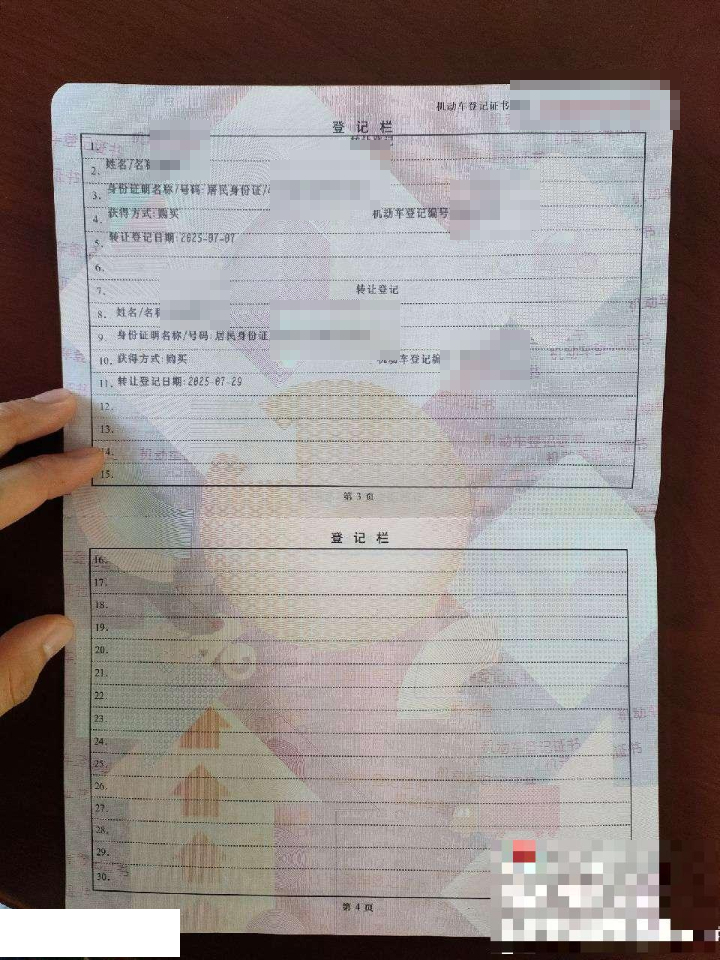 机动车登记证书
登记栏
1. 转让登记
2. 姓名/名称
3. 身份证明名称/号码:居民身份证/
4. 获得方式:购买 机动车登记编号
5. 转让登记日期:2025-07-07
6.
7. 转让登记
8. 姓名/名称
9. 身份证明名称/号码:居民身份证
10. 获得方式:购买 机动车登记编
11. 转让登记日期:2025-07-29
12.
13.
14.
15.
第 3 页
登记栏
16.
17.
18.
19.
20.
21.
22
23
24.
25.
26.
27.
28.
29.
30.
第 4 页